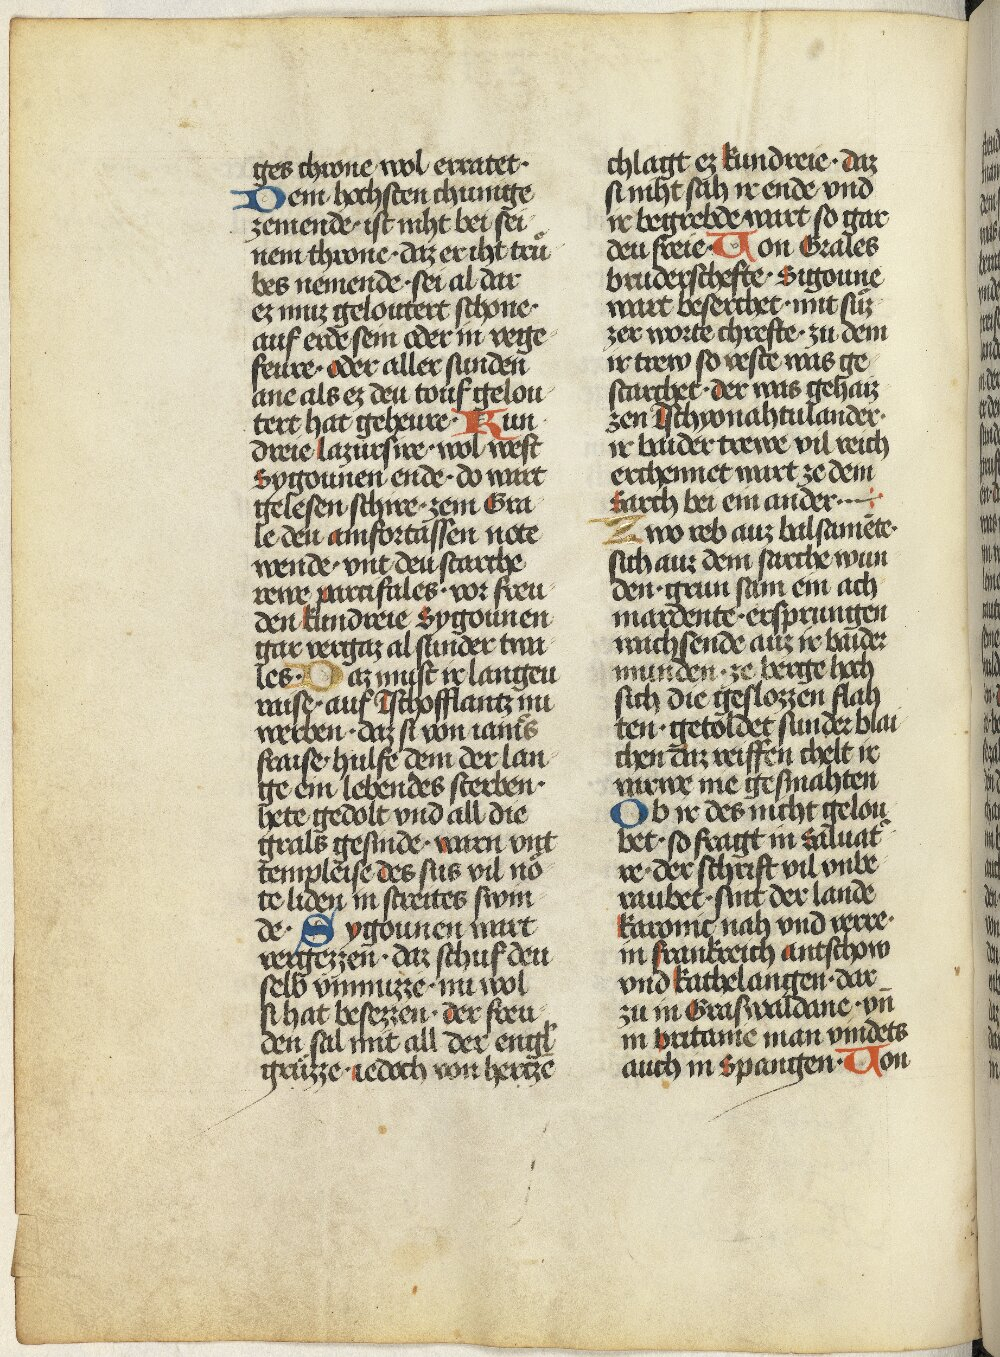 ges chrone wol erratet·
Dem hochsten chunige
zemende· ist niht bei sei
nem throne· daz er iht trů
bes nemende· sei al dar
ez muz geloutert schone·
auf erde sein oder in vege
feure· oder aller sunden
ane als ez deu touf gelou
tert hat geheure· Kun
dreie lazursire· wol west
Sygounen ende· do wart
gelesen schire· zem Gra
le deu amfortassen note
wende· vnt deu starche
rewe parcifales· vor freu
den kundreie Sygounen
gar vergaz al sunder twa
les· Daz must ir langeu
raise· auf Tschofflantz nu
werben· daz si von
fraise· hulfe dem der lan
ge ein lebendes sterben·
hete gedolt vnd all die
grals gesinde· warn vnt
templeise des sus vil nǒ
te liden in streites swin
de· Sygounen wart
vergezzen· daz schuf deu
selb vnmuzze· nu wol
si hat besezzen· der freu
den sal mit all der engl
grůzze· iedoch von hertze
chlagt ez kundreie· daz
si niht sah ir ende vnd
ir begrebde wart so gar
deu freie· Von Grales
bruderschefte· Sigoune
wart beserchet· mit sůz
zer worte chrefte· zu dem
ir trew so veste was ge
starchet· der was gehaiz
zen Tschyonahtulander·
ir baider trewe vil reich
erchennet wart ze dem
Sarch bei ein ander·
Zwo reb auz balsamēte·
sich auz dem sarche wun
den· grun sam ein ach
mardente· ersprungen
wachsende auz ir baider
munden· ze berge hoch
sich die geslozzen flah
ten· getoldet sunder blai
chen daz reiffen chelt ir
varwe nie gesmahten
Ob ir des nicht gelou
bet· so fragt in Saluat
re· der schrift vil vnbe
raubet· sint der lande
karonic nah vnd verre·
in frankreich antschow
vnd kathelangen· dar
zu in Graswaldane· vn̄
in britanie man vindets
auch in Spangen· Von